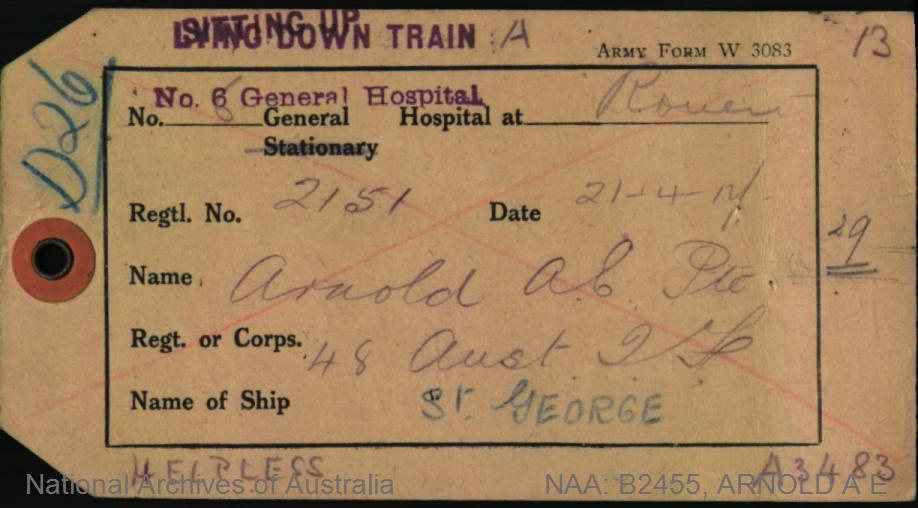 SITTING UP
LYING DOWN TRAIN A
ARMY FORM W 3083
13
D26
No. 6 General Hospital
No. 6 General Hospital at Rouen
Stationary
Regtl. No. 2151 Date 21-4-17
29
Name Arnold A.E. Pte
Regt. or Corps. 48 Aust. I F
Name of Ship St. GEORGE
HELPLESS A3483
National Archives of Australia NAA: B2455, ARNOLD A E